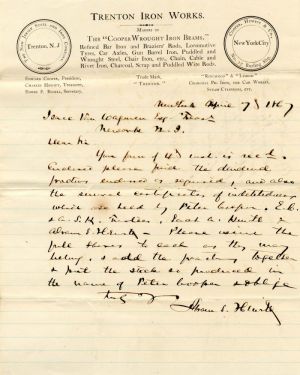 TRENTON IRON WORKS.
MAKERS OF
THE "COOPER WROUGHT IRON BEAMS."
Refined Bar Iron and Braziers' Rods, Locomotive
Tyres, Car Axles, Gun Barrel Iron, Puddled and
Wrought Steel, Chair Iron, etc., Chain, Cable and
River Iron, Charcoal, Scrap and Puddled Wire Rods.
Trenton, N.J
New York City
EDWARD COOPER, President,
CHARLES HEWITT, Treasurer,
Secretary.
Trade Mark,
"TRENTON."
"RINGWOOD" & "
CHARCOAL PIG IRON, FOR CAR WHEELS,
STEAM CYLINDERS, ETC.
New York April 7 1867
Isaac Van Wagenen Esq
Newark N. J.
Dear Sir
Your favor of 4th inst. is recd.
Enclosed please find the dividend
receipts endorsed as required, and also
the several certificates of indebtedness
which are held by Peter Cooper, E. C.
Trustees,
Abram S. Hewitt - Please issue the
full shares to each as they may
belong, & add the fractions together
& put the stock so produced in
the name of Peter Cooper & oblige
truly yrs
Abram S. Hewitt